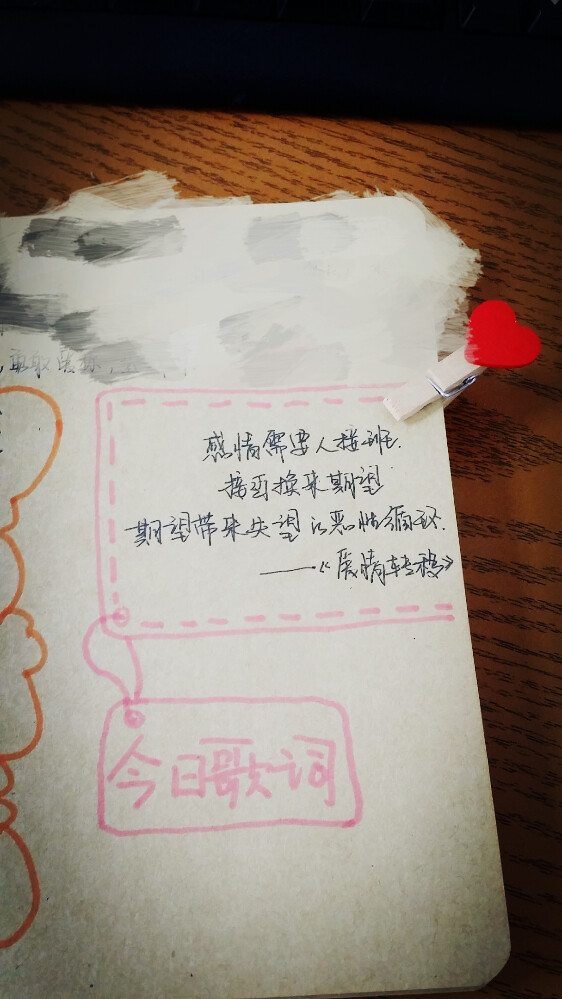 感情需要人接班
接近换来期望
期望带来失望的恶性循环
——《爱情转移》
今日歌词